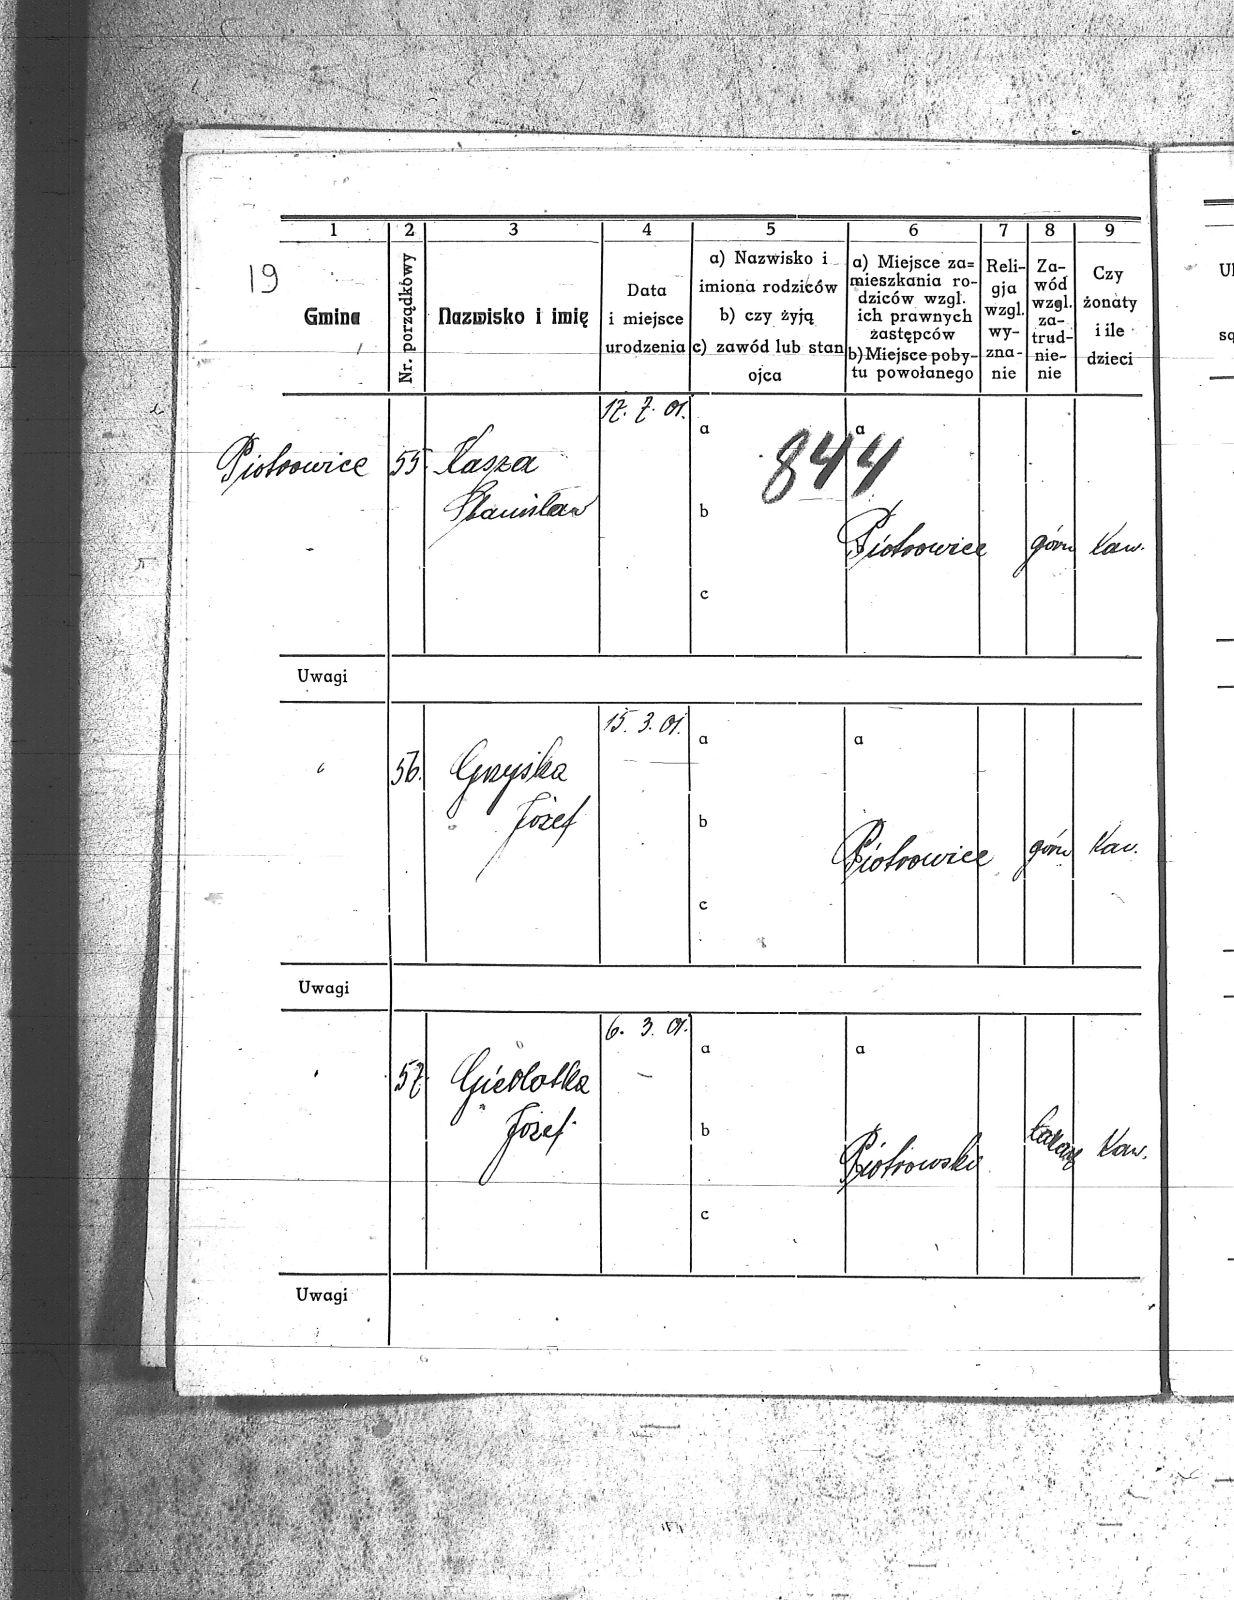 19
1 2 3 4 5 6 7 8 9
Gmina
Nr. porządkowy
Nazwisko i imię
Data
i miejsce
urodzenia
a) Nazwisko i
imiona rodziców
b) czy żyją
c) zawód lub stan
ojca
a) Miejsce za=
mieszkania ro-
dziców wzgl.
ich prawnych
zastępców
b) Miejsce poby-
tu powołanego
Reli-
gja
wzgl.
wy-
zna-
nie
Za-
wód
wzgl.
za-
trud-
nie-
nie
Czy
żonaty
i ile
dzieci
17. 7. 01.
a a
844
Piotrowice 55. Kasza
Stanisław
b
Piotrowice górn Kaw.
c
Uwagi
15. 3. 01.
a a
56. Gryska
Józef
b
Piotrowice górn Kaw.
c
Uwagi
6. 3. 01.
a a
57. Giedlotka
Józef
b
Piotrowski Kaw.
c
Uwagi